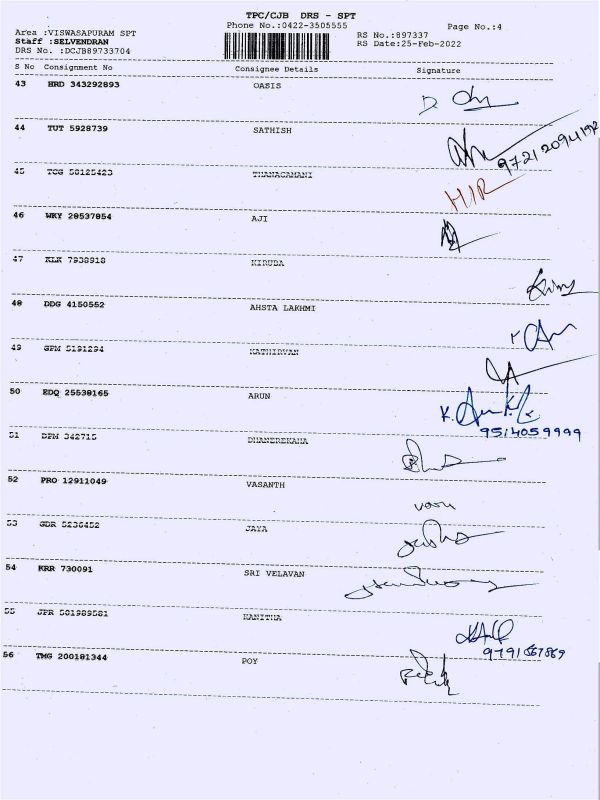 TPC/CJB DRS - SPT
Phone No.:0422-3505555
Page No.:4
Area :VISWASAPURAM SPT
RS No.:897337
Staff :SELVENDRAN
RS Date:25-Feb-2022
DRS No. :DCJB89733704
S No Consignment No Consignee Details Signature
43 HRD 343292893 OASIS
44 TUT 5928739 SATHISH
97212094192
45 TCG 58125423 THANAGAMANI
HIR
46 WKY 28537854 AJI
47 KLK 7938918 KIRUBA
48 DDG 4150552 AHSTA LAKHMI
49 GPM 5191294 KATHIRVAN
50 EDQ 25538165 ARUN
9514059999
51 342715
52 PRO 12911049 VASANTH
vasu
53 GDR 5236452 JAYA
54 KRR 730091 SRI VELAVAN
55 JPR 581989581
56 TMG 200181344 POY